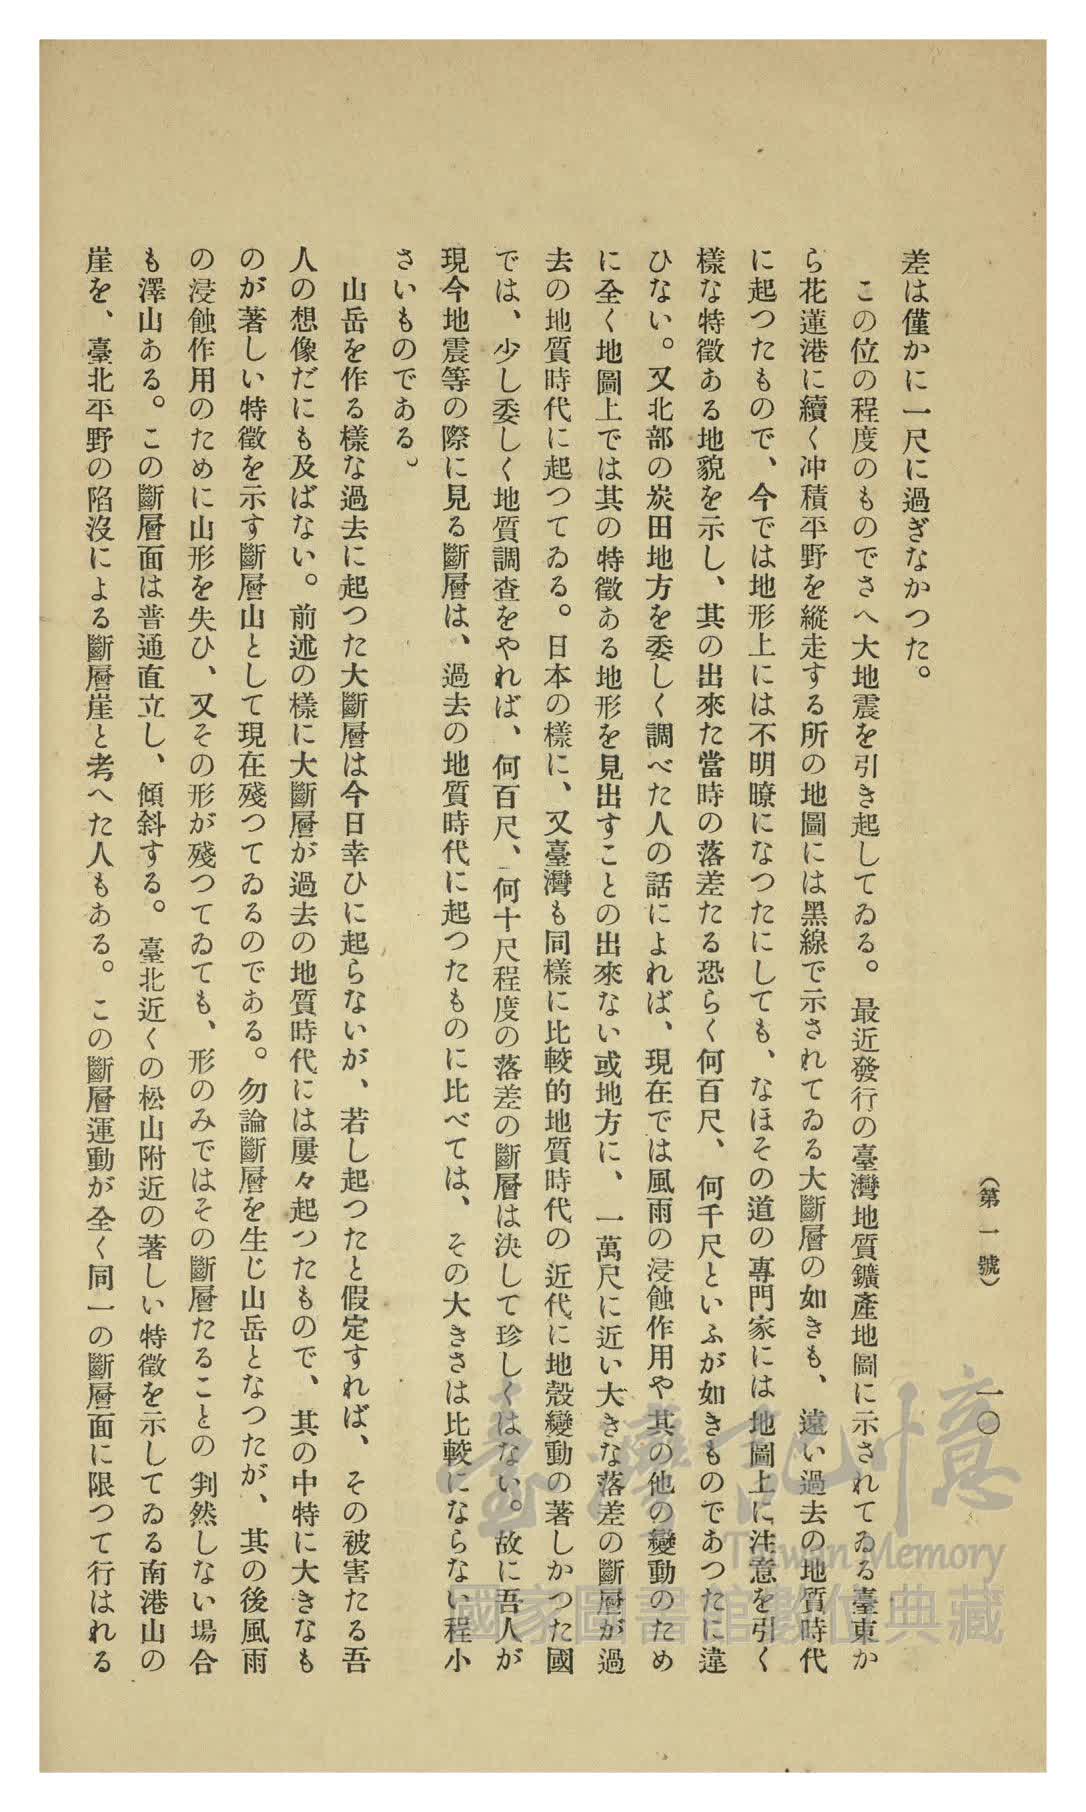 （第一號）　一〇
差は僅かに一尺に過ぎなかつた。
この位の程度のものでさへ大地震を引き起してゐる。最近發行の臺灣地質鑛產地圖に示されてゐる臺東か
ら花蓮港に續く冲積平野を縱走する所の地圖には黑線で示されてゐる大斷層の如きも、遠い過去の地質時代
に起つたもので、今では地形上には不明瞭になつたにしても、なほその道の專門家には地圖上に注意を引く
樣な特徵ある地貌を示し、其の出來た當時の落差たる恐らく何百尺、何千尺といふが如きものであつたに違
ひない。又北部の炭田地方を委しく調べた人の話によれば、現在では風雨の浸蝕作用や其の他の變動のため
に全く地圖上では其の特徵ある地形を見出すことの出來ない或地方に、一萬尺に近い大きな落差の斷層が過
去の地質時代に起つてゐる。日本の樣に、又臺灣も同樣に比較的地質時代の近代に地殼變動の著しかつた國
では、少し委しく地質調査をやれば、何百尺、何十尺程度の落差の斷層は決して珍しくはない。故に吾人が
現今地震等の際に見る斷層は、過去の地質時代に起つたものに比べては、その大きさは比較にならない程小
さいものである。
山岳を作る樣な過去に起つた大斷層は今日幸ひに起らないが、若し起つたと假定すれば、その被害たる吾
人の想像だにも及ばない。前述の樣に大斷層が過去の地質時代には屢々起つたもので、其の中特に大きなも
のが著しい特徵を示す斷層山として現在殘つてゐるのである。勿論斷層を生じ山岳となつたが、其の後風雨
の浸蝕作用のために山形を失ひ、又その形が殘つてゐても、形のみではその斷層たることの判然しない場合
も澤山ある。この斷層面は普通直立し、傾斜する。臺北近くの松山附近の著しい特徵を示してゐる南港山の
崖を、臺北平野の陷沒による斷層崖と考へた人もある。この斷層運動が全く同一の斷層面に限つて行はれる
臺灣記憶
Taiwan Memory
國家圖書館數位典藏